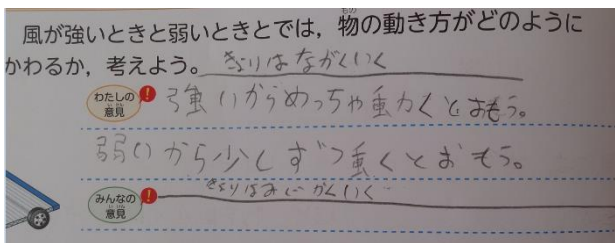 風が強いときと弱いときとでは，物の動き方がどのように
かわるか，考えよう。きょりはながくいく
わたしの
意見
強いからめっちゃ動くとおもう。
弱いから少しずつ動くとおもう。
きょりはみじかくいく
みんなの
意見